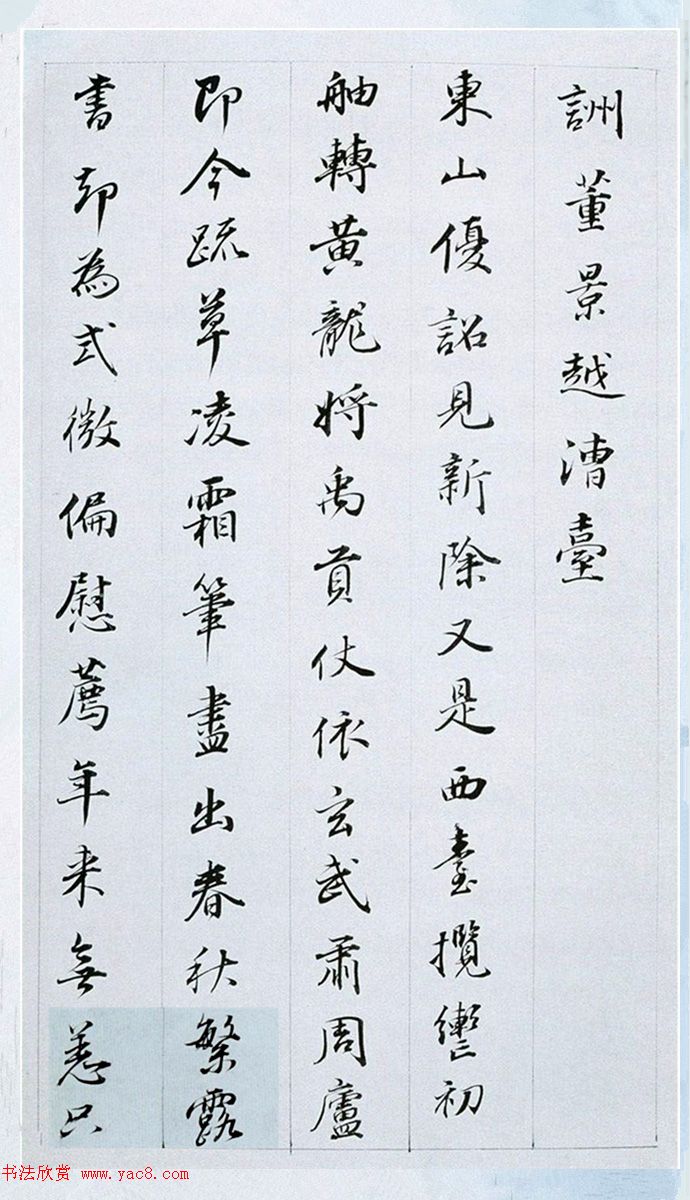 詶董景越漕臺
東山優詔見新除又是西臺攬轡初
舳轉黃龍將禹貢仗依玄武肅周廬
即今疏草凌霜筆盡出春秋繁露
書却為式微偏慰薦年来無恙只
书法欣赏 www.yac8.com